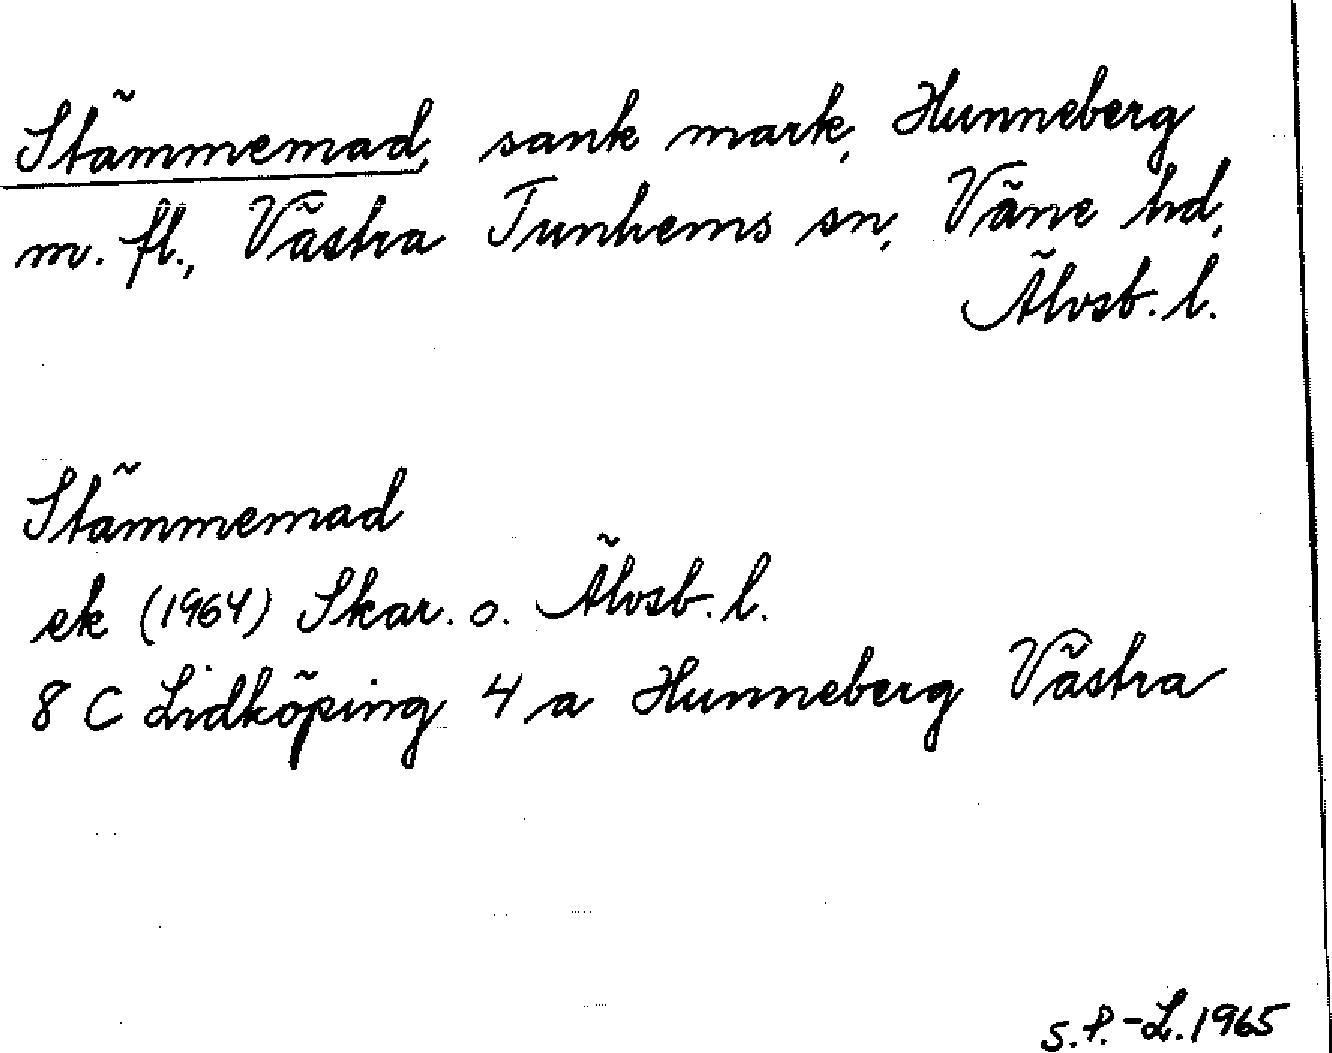 Stämmemad, sank mark, Hunneberg
m. fl., Västra Tunhems sn, Väne hd,
Älvsb. l.
Stämmemad
ek (1964) Skar. o. Älvsb. l.
8 C Lidköping 4 a Hunneberg Västra
S. P.-L. 1965